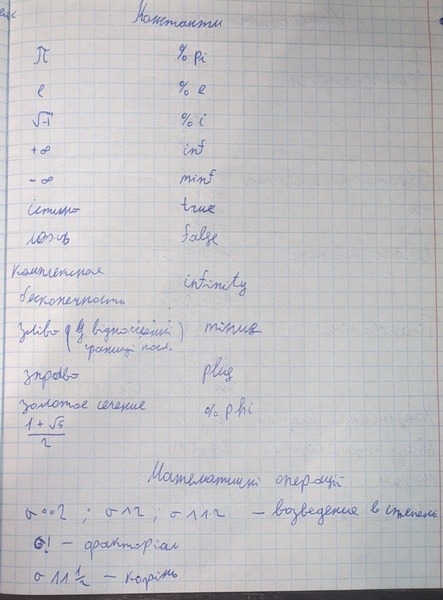 Константи
π %pi
e %e
√-1 %i
+∞ inf
-∞ minf
істино true
ложь false
комплексная
бесконечность infinity
зліво (у відношенні) minus
границі посл.
зправо plus
золотое сечение %phi
1 + √5
2
Математичні операції
σ**2 ; σ^2 ; σ^^2 – возведение в степень
σ! – факторіал
σ^^½ – корінь